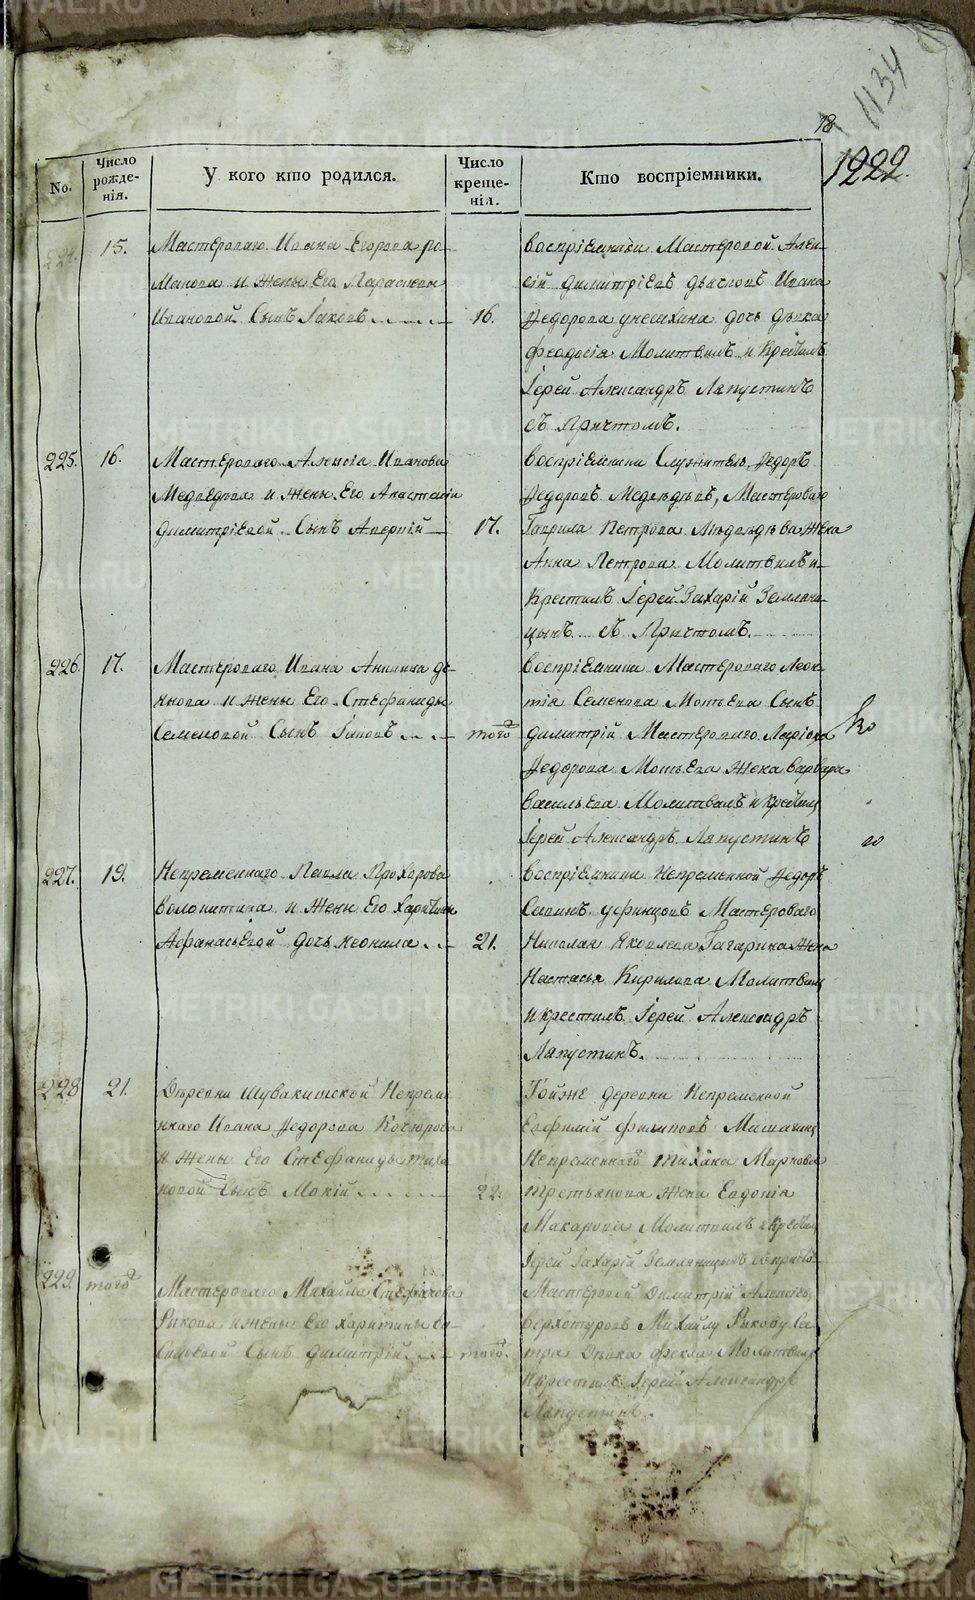 1134
18
1222.
No.
Число рожде-нія.
У кого кто родился.
Число креще-нія.
Кто воспріемники.
15.
Мастероваго Ивана Егорова ро-
манова и жены Его Параскевы
Ивановой Сынъ Іаковъ
16.
воспріемники Мастеровой Алек-
сій димитріевъ Ивана
Ѳедорова дочь дѣвка
феодосія Молитвилъ и Крестилъ
Іерей Александръ Ляпустинъ
съ Причтомъ.
225.
16.
Мастероваго Алексія Иванова
Медведева и жены Его Анастасіи
димитріевой Сынъ Аверкій
17.
воспріемники Служитель Ѳедоръ
Ѳедоровъ Медведевъ, Мастероваго
Гаврила Петрова Медведева Жена
Анна Петрова Молитвилъ и
Крестилъ Іерей Захарій Земляни-
цынъ съ Причтомъ.
226.
17.
Мастероваго Ивана Аникина
и жены Его Стефаниды
Семеновой Сынъ Іаковъ
того
воспріемники Мастероваго Леон-
тія Семенова Мотьева Сынъ
димитрій Мастероваго Ларіона
Ѳедорова Мотьева Жена варвара
васильева Молитвилъ и Крестилъ
Іерей Александръ Ляпустинъ
227.
19.
Непременнаго Павла Прохорова
волокитина и жены Его харитины
Афанасьевой дочь неонила
21.
воспріемники Непременной Ѳедоръ
Мастероваго
Николая Яковлева Гагарина Жена
Настасья Кирилова Молитвилъ
и крестилъ Іерей Александръ
Ляпустинъ.
228
21.
Деревни Шувакишской Непреме-
ннаго Ивана Ѳедорова
и жены Его Стефаниды тиха-
новой Сынъ Мокій
22.
Тойже деревни Непременной
Евфимій филиповъ
Непременнаго тихана Маркова
третьякова жена Евдокія
Макарова Молитвилъ и Крестилъ
Іерей Захарій Земляницынъ
229.
того
Мастероваго Михайла Стефанова
Рикова и жены Его харитины ва-
сильевой Сынъ димитрій
того.
Мастеровой Димитрій Алексѣевъ
верхотуровъ Михайлу Рикову Се-
тра Дѣвка фекла Молитвилъ
и Крестилъ Іерей Александръ
Ляпустинъ.
METRIKI.GASO-URAL.RU